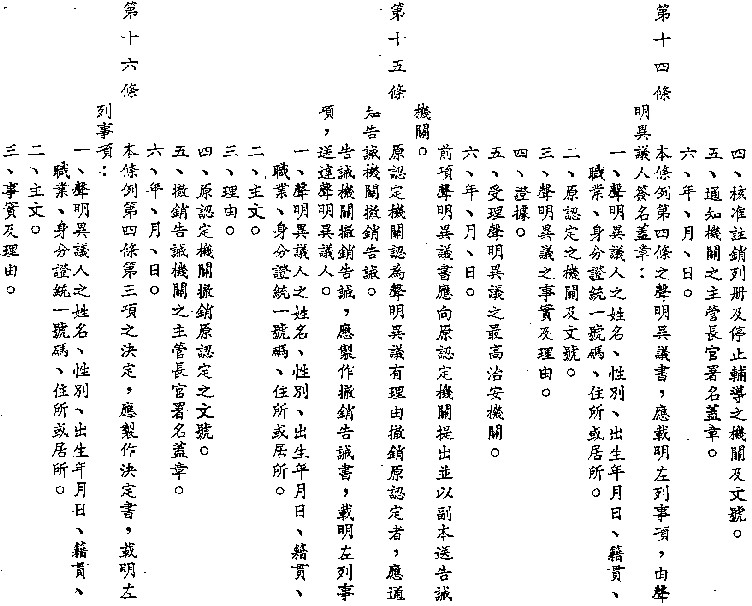 四、核准註銷列册及停止輔導之機關及文號。
五、通知機關之主管長官署名蓋章。
六、年、月、日。
第十四條 本條例第四條之聲明異議書，應載明左列事項，由聲
明異議人簽名蓋章：
一、聲明異議人之姓名、性別、出生年月日、籍貫、
職業、身分證統一號碼、住所或居所。
二、原認定之機關及文號。
三、聲明異議之事實及理由。
四、證據。
五、受理聲明異議之最高治安機關。
六、年、月、日。
前項聲明異議書應向原認定機關提出並以副本送告誡
機關。
第十五條 原認定機關認為聲明異議有理由撤銷原認定者，應通
知告誡機關撤銷告誡。
告誡機關撤銷告誡，應製作撤銷告誡書，載明左列事
項，送達聲明異議人。
一、聲明異議人之姓名、性別、出生年月日、籍貫、
職業、身分證統一號碼、住所或居所。
二、主文。
三、理由。
四、原認定機關撤銷原認定之文號。
五、撤銷告誡機關之主管長官署名蓋章。
六、年、月、日。
第十六條 本條例第四條第三項之決定，應製作決定書，載明左
列事項：
一、聲明異議人之姓名、性別、出生年月日、籍貫、
職業、身分證統一號碼、住所或居所。
二、主文。
三、事實及理由。